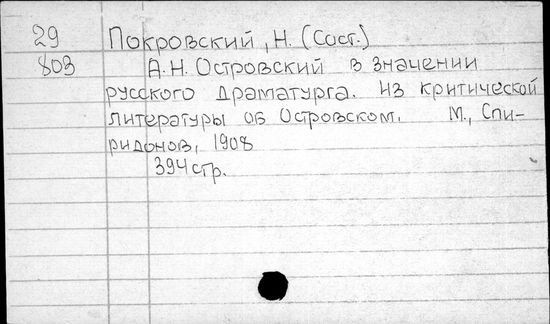 29 Покровский, Н. (Сост.)
803 А.Н. Островский в значении
русского драматурга. Из критической
литературы об Островском. М., Спи-
ридонов, 1908
394 стр.